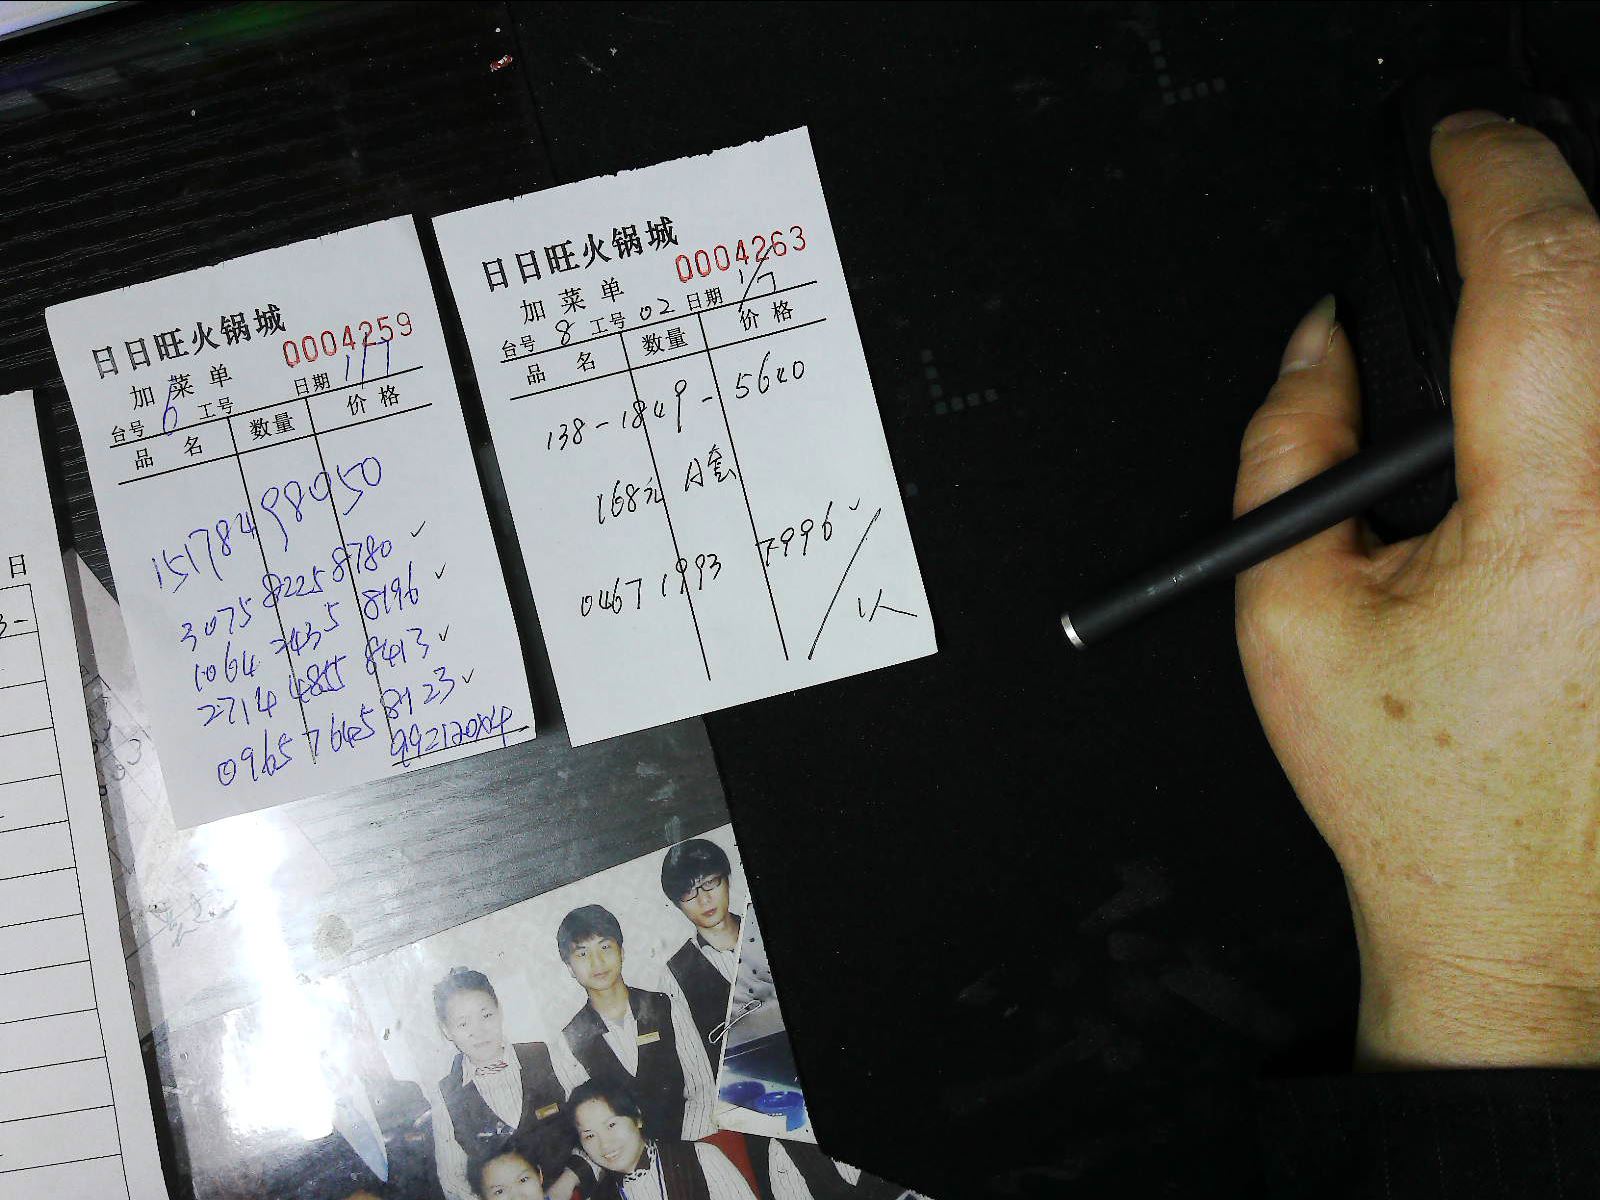 日日旺火锅城
0004259
加菜单
台号 6 工号 日期 1/7
品名 数量 价格
15178498050
3075 8225 8780 ✓
1064 2435 8196 ✓
2714 4855 8413 ✓
0965 7645 8123 ✓
日日旺火锅城
0004263
加菜单
台号 8 工号 02 日期 1/7
品名 数量 价格
138-1849-5640
168元 A套
0467 1993 7996 ✓
日